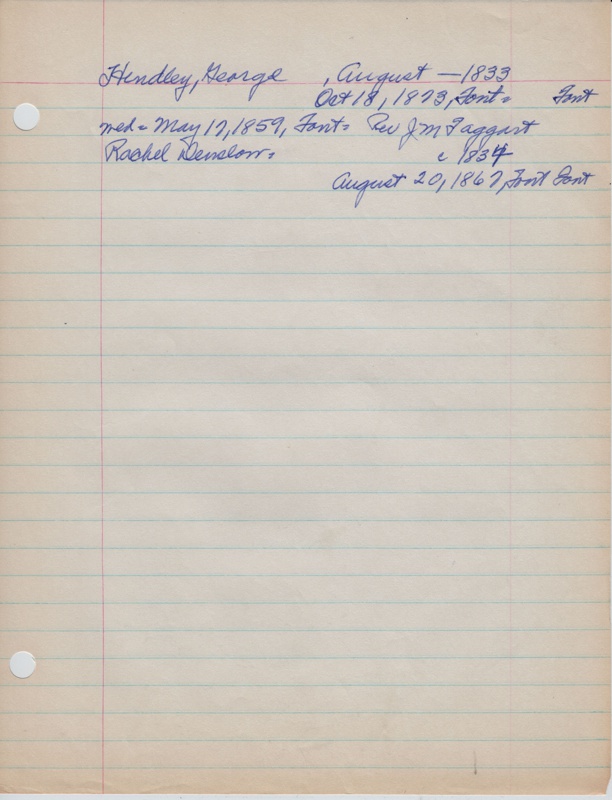 Hendley, George , August — 1833
Oct 18, 1873, Font = Font
med = May 17, 1859, Font = Rev J M Taggart
Rachel Denslow = c 1834
August 20, 1867, Font Font